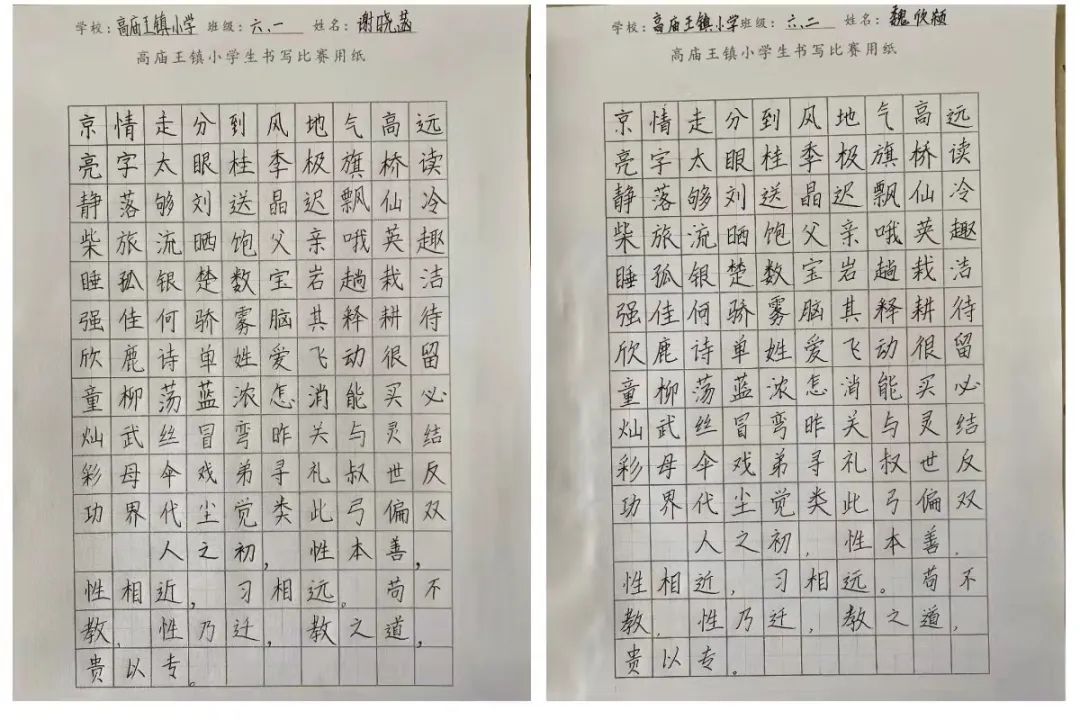 学校：高庙王镇小学 班级：六、一 姓名：谢晓菡
高庙王镇小学生书写比赛用纸
京情走分到风地气高远
亮字太眼桂季极旗桥读
静落够刘送晶迟飘仙冷
柴旅流晒饱父亲哦英趣
睡孤银楚数宝岩趟栽洁
强佳何骄雾脑其释耕待
欣鹿诗单姓爱飞动很留
童柳荡蓝浓怎消能买必
灿武丝冒弯昨关与灵结
彩母伞戏弟寻礼叔世反
功界代尘觉类此弓偏双
人之初，性本善，
性相近，习相远。苟不
教，性乃迁，教之道，
贵以专。
学校：高庙王镇小学 班级：六、二 姓名：魏欣颖
高庙王镇小学生书写比赛用纸
京情走分到风地气高远
亮字太眼桂季极旗桥读
静落够刘送晶迟飘仙冷
柴旅流晒饱父亲哦英趣
睡孤银楚数宝岩趟栽洁
强佳何骄雾脑其释耕待
欣鹿诗单姓爱飞动很留
童柳荡蓝浓怎消能买必
灿武丝冒弯昨关与灵结
彩母伞戏弟寻礼叔世反
功界代尘觉类此弓偏双
人之初，性本善，
性相近，习相远。苟不
教，性乃迁，教之道，
贵以专。